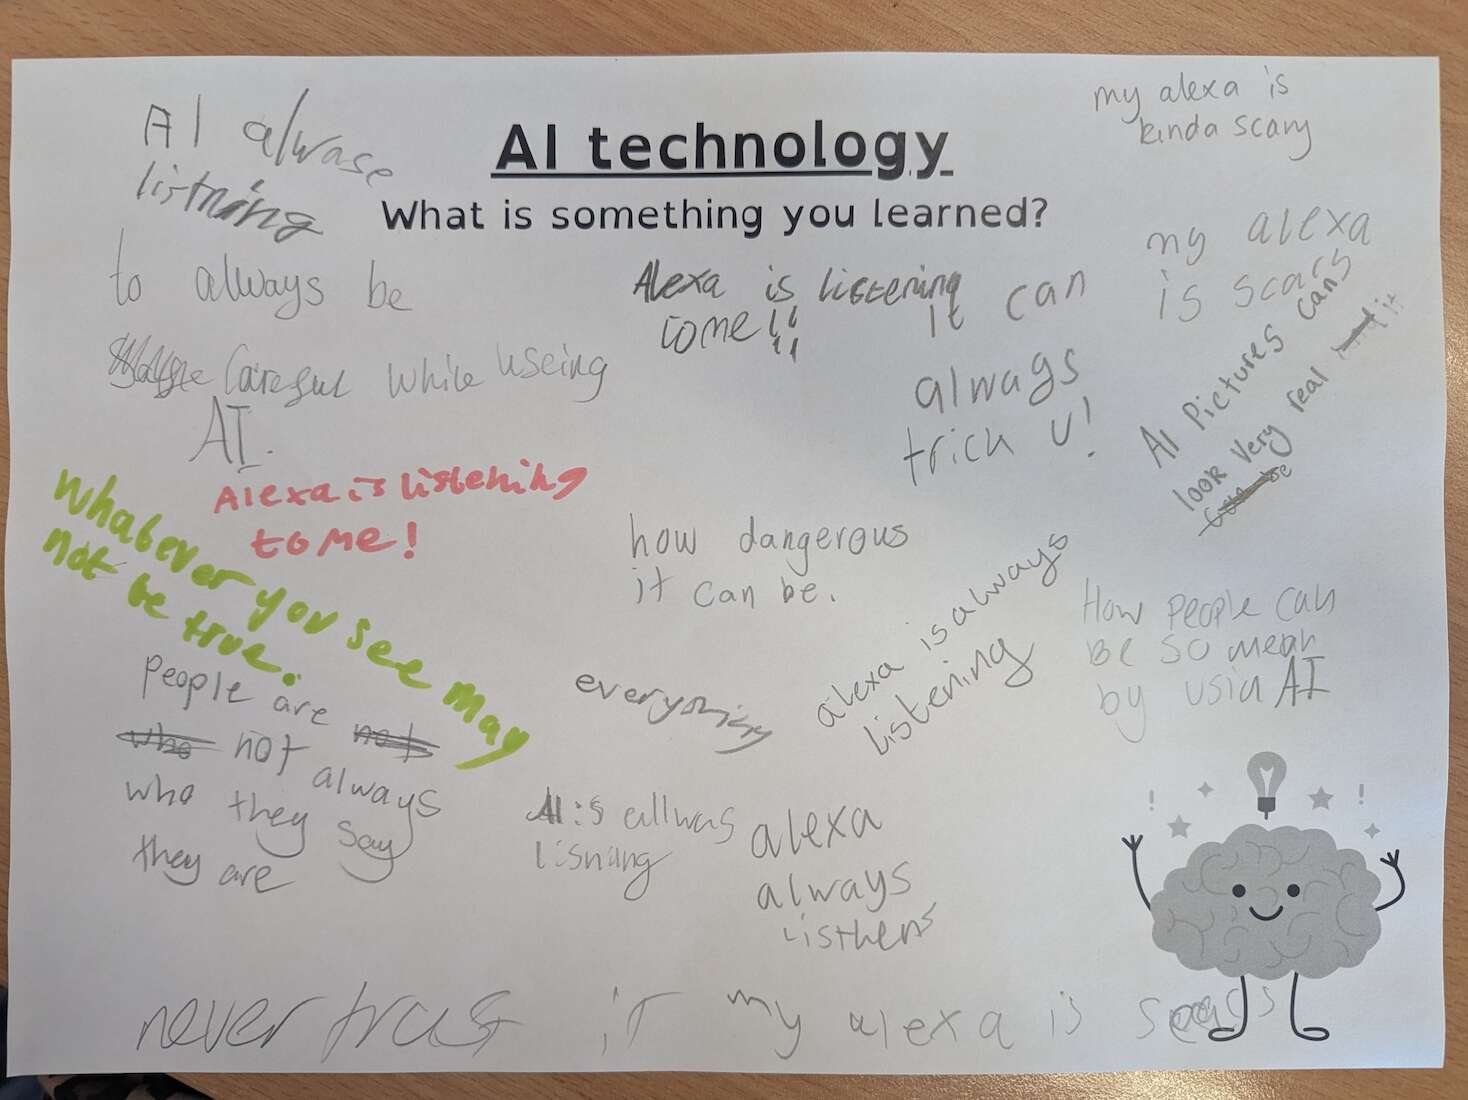 AI technology
What is something you learned?
AI alwase
listning
my alexa is
kinda scary
to always be
Careful while useing
AI.
Alexa is listening
to me!!
it can
always
trick u!
my alexa
is scars
AI Pictures cans
look very real it
Alexa is listening
to me!
Whatever you see may
not be true.
how dangerous
it can be.
alexa is always
listening
How people can
be so mean
by usin AI
people are
not always
who they say
they are
everything
AI is allwas
lisning
alexa
always
listhens
never trust it my alexa is